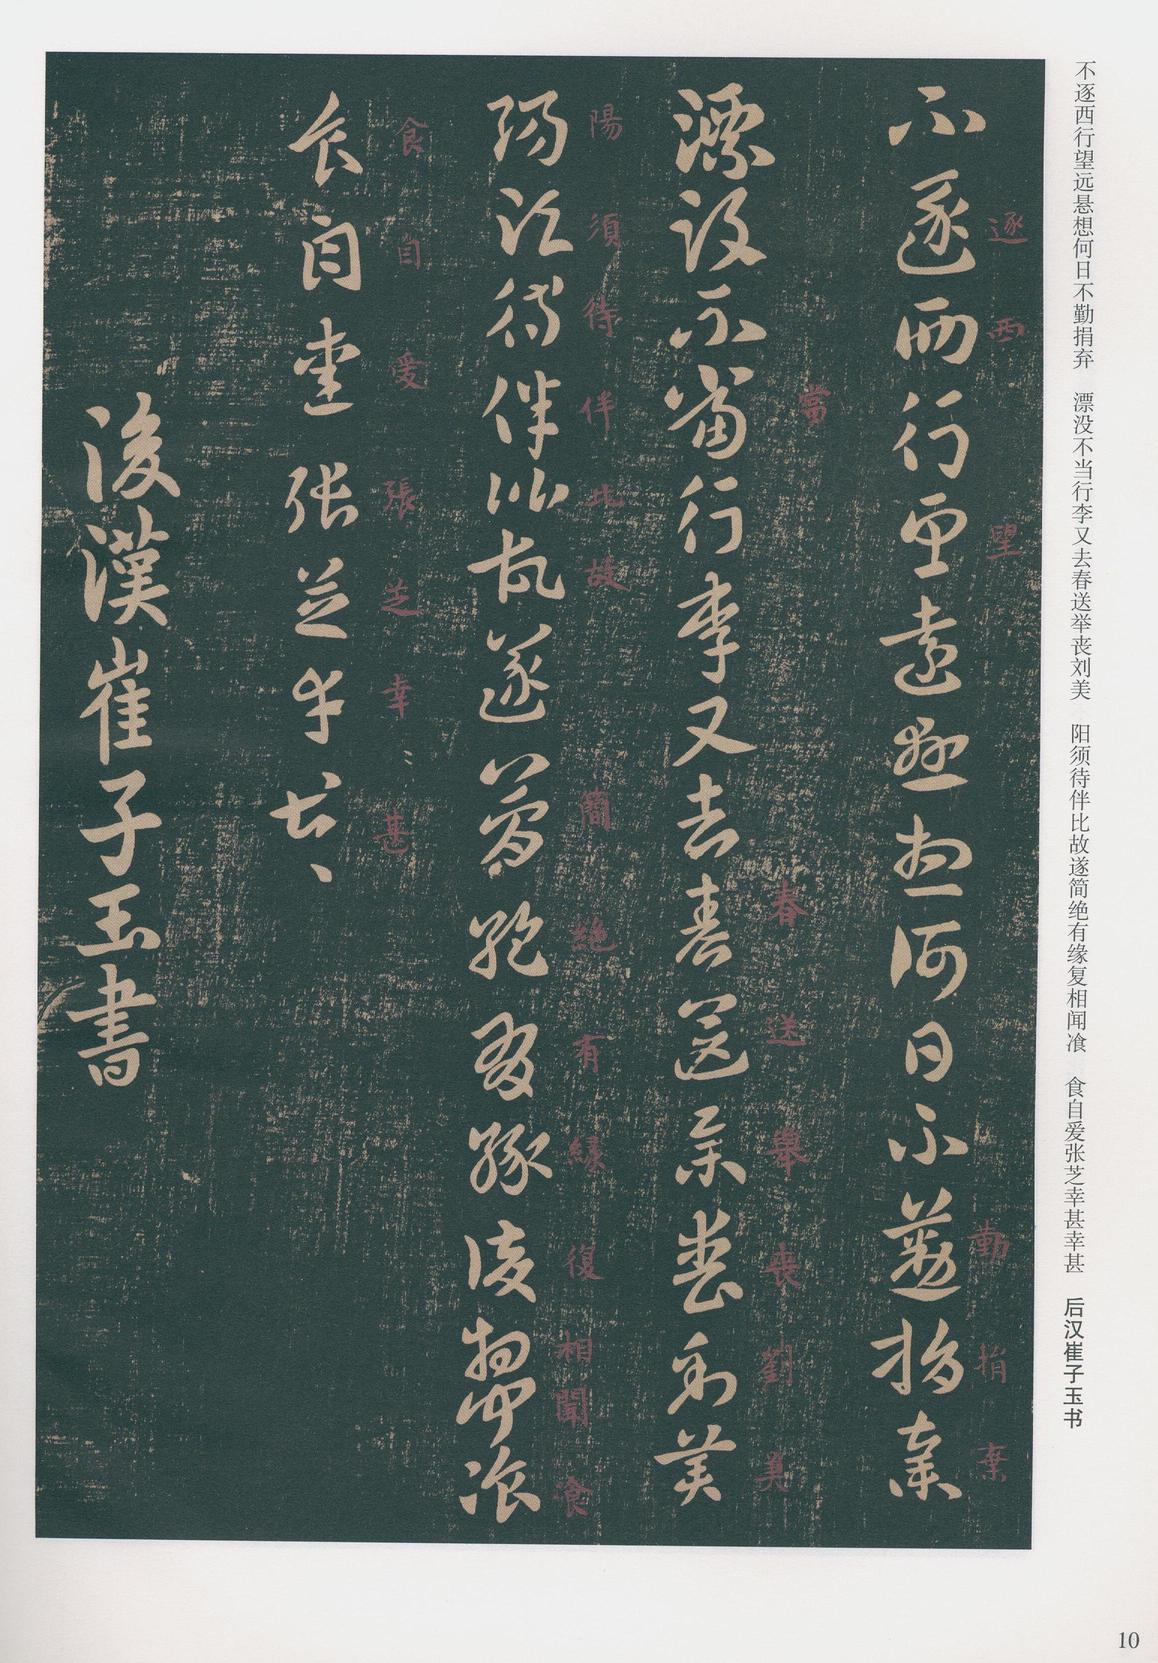 不逐西行望远悬想何日不勤捐弃　漂没不当行李又去春送举丧刘美　阳须待伴比故遂简绝有缘复相闻飡　食自爱张芝幸甚幸甚　后汉崔子玉书
不逐西行望遠懸想何日不勤捐棄
逐西望勤捐棄
漂没不當行李又去春送舉喪劉美
當春送舉喪劉美
陽須待伴比故遂簡絶有緣復相聞飡
陽須待伴比故簡絶有緣復相聞飡
食自愛張芝幸甚〻
食自愛張芝幸〻甚
後漢崔子玉書
10